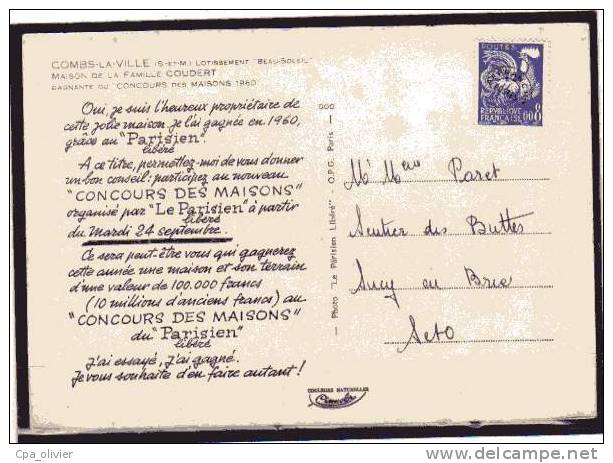 COMBS-LA-VILLE (S-ET-M.) LOTISSEMENT "BEAU-SOLEIL"
MAISON DE LA FAMILLE COUDERT
GAGNANTE DU "CONCOURS DES MAISONS 1960
Oui, je suis l'heureux propriétaire de
cette jolie maison, je l'ai gagnée en 1960,
grâce au "Parisien"
libéré
A ce titre, permettez-moi de vous donner
un bon conseil : participez au nouveau
"CONCOURS DES MAISONS"
organisé par "Le Parisien" à partir
libéré
du Mardi 24 septembre.
Ce sera peut-être vous qui gagnerez
cette année une maison et son terrain
d'une valeur de 100.000 francs
(10 millions d'anciens francs) au
"CONCOURS DES MAISONS"
du "Parisien"
libéré
J'ai essayé, j'ai gagné.
Je vous souhaite d'en faire autant !
— Photo "Le Parisien Libéré" — O.P.G. Paris — 000
POSTES
REPUBLIQUE
FRANÇAISE
0,08
Mr Mme Paret
Sentier des Buttes
Sucy en Brie
Seto
COULEURS NATURELLES
Cpa_olivier
www.delcampe.net